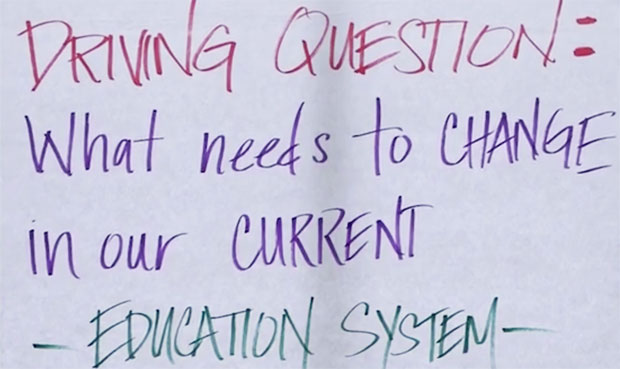 DRIVING QUESTION:
What needs to CHANGE
in our CURRENT
- EDUCATION SYSTEM -